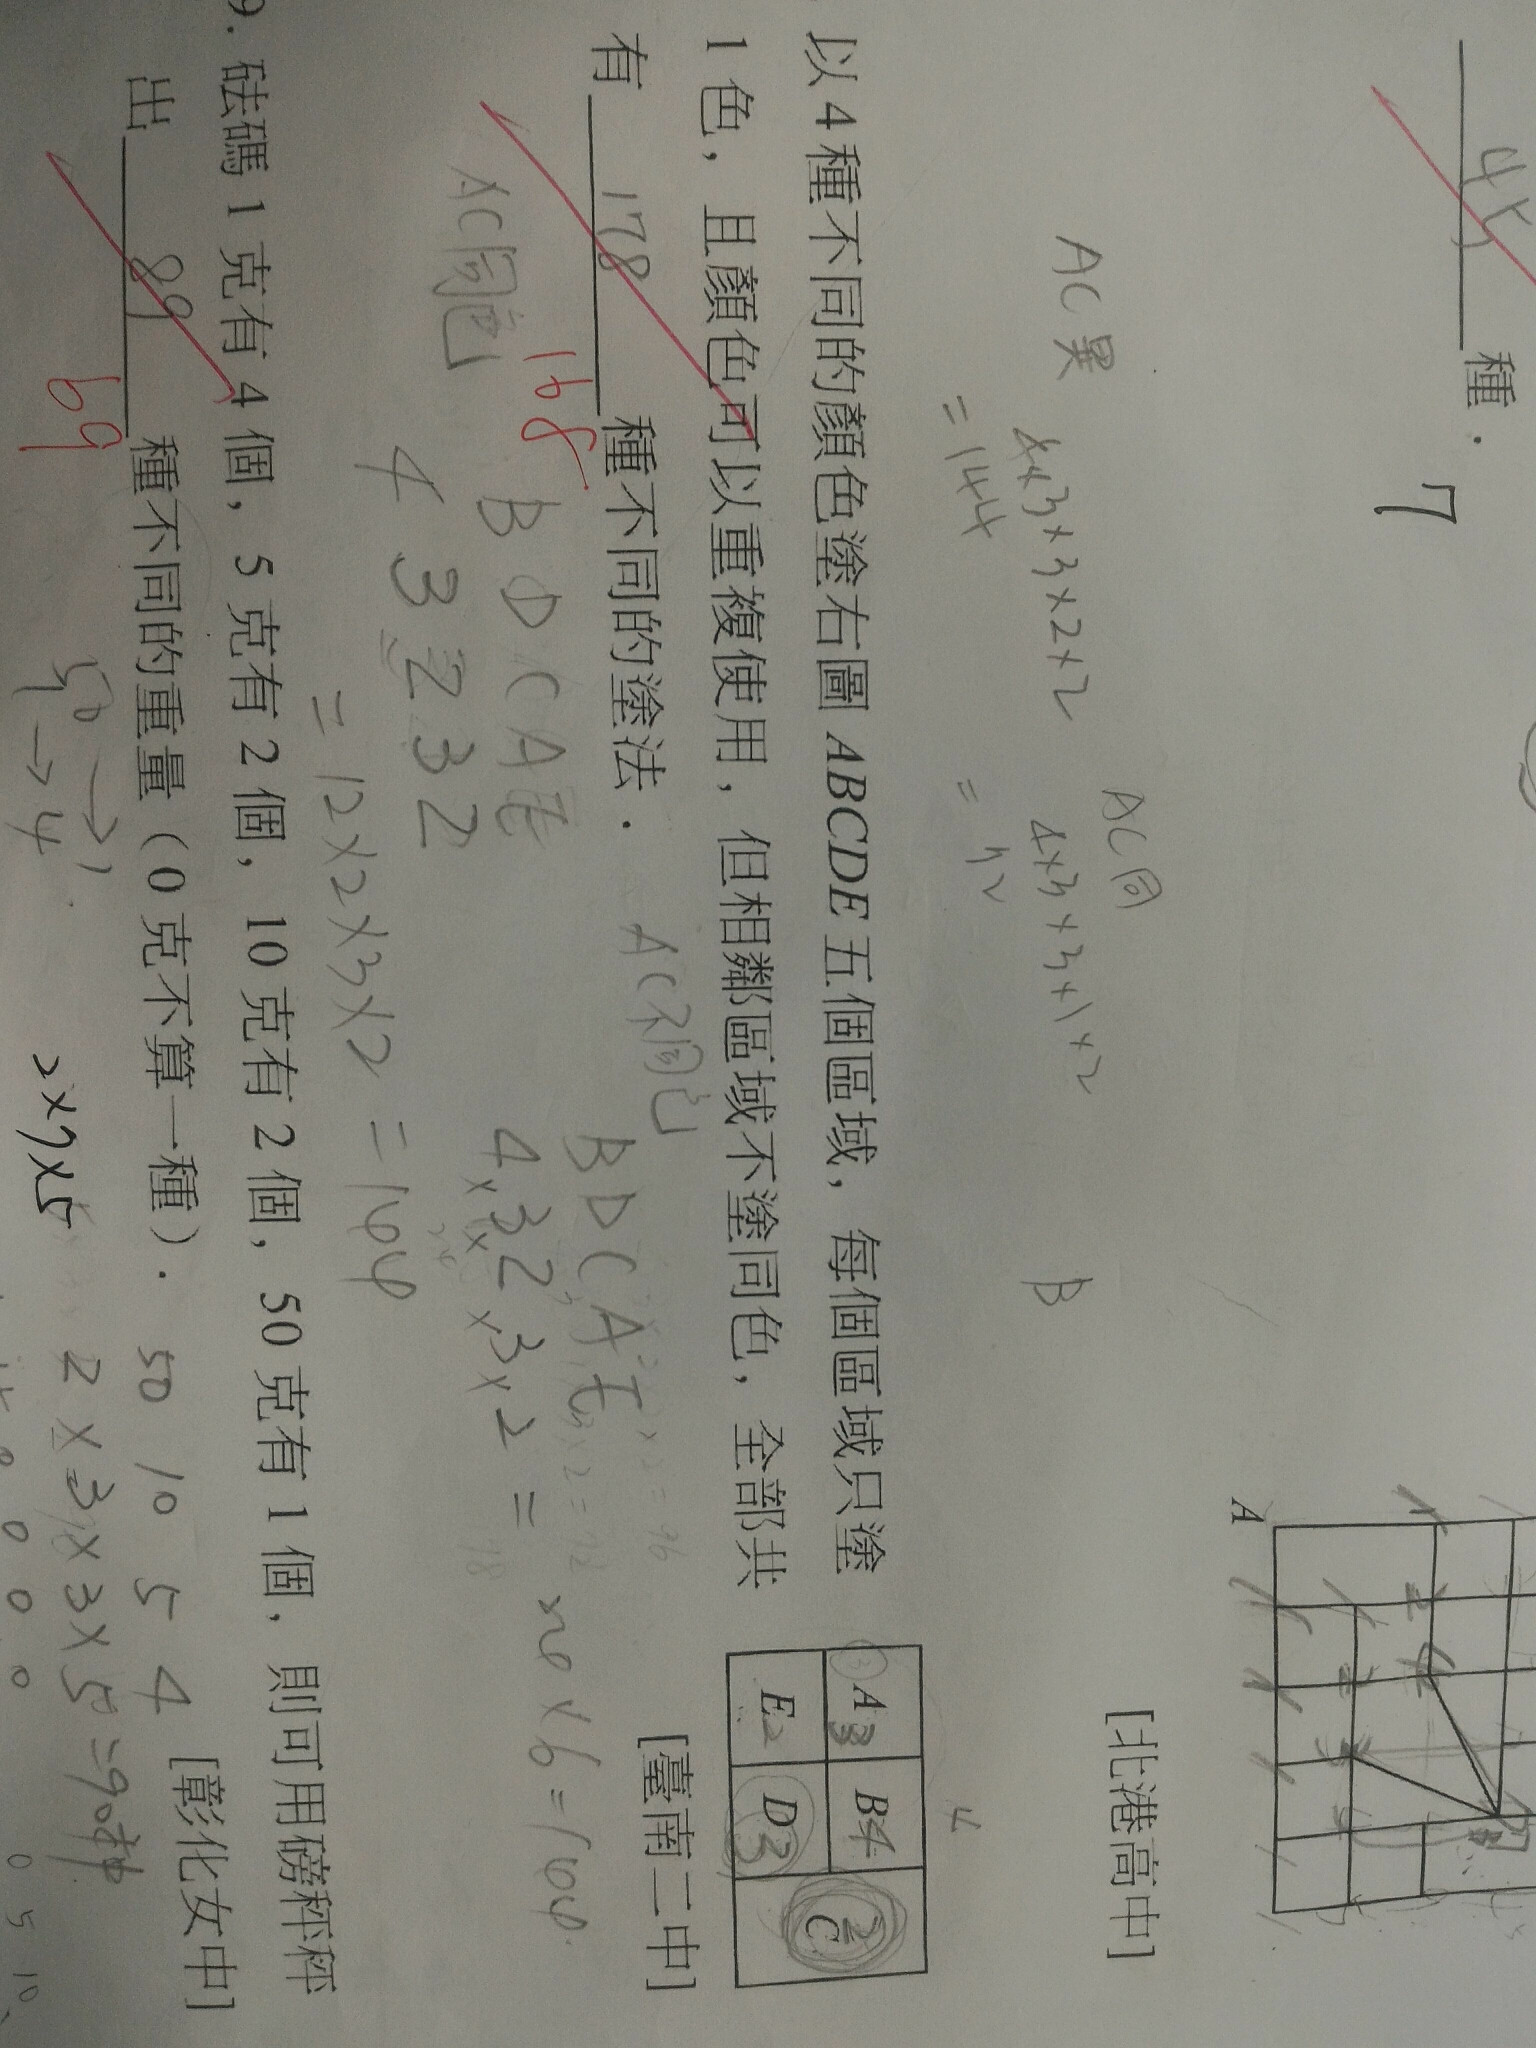 45 種． 7
[北港高中]
A
AC異 4×3×3×2×2
=144
AC同 4×3×3×1×2
=72
B
以 4 種不同的顏色塗右圖 ABCDE 五個區域，每個區域只塗
1 色，且顏色可以重複使用，但相鄰區域不塗同色，全部共
有 178 種不同的塗法．
168
[臺南二中]
A3 B4 C
E2 D3
AC同色
B D C A E
4 3 2 3 2
=12×2×3×2=144
AC不同色
B D C A E
4×3×2×3×2=
9. 砝碼 1 克有 4 個，5 克有 2 個，10 克有 2 個，50 克有 1 個，則可用磅秤秤
出 89 種不同的重量（0 克不算一種）．
69
[彰化女中]
50→1
5→4
2×9×5
50 10 5 4
2×3×3×5=90種
0 0 0
0 5 10